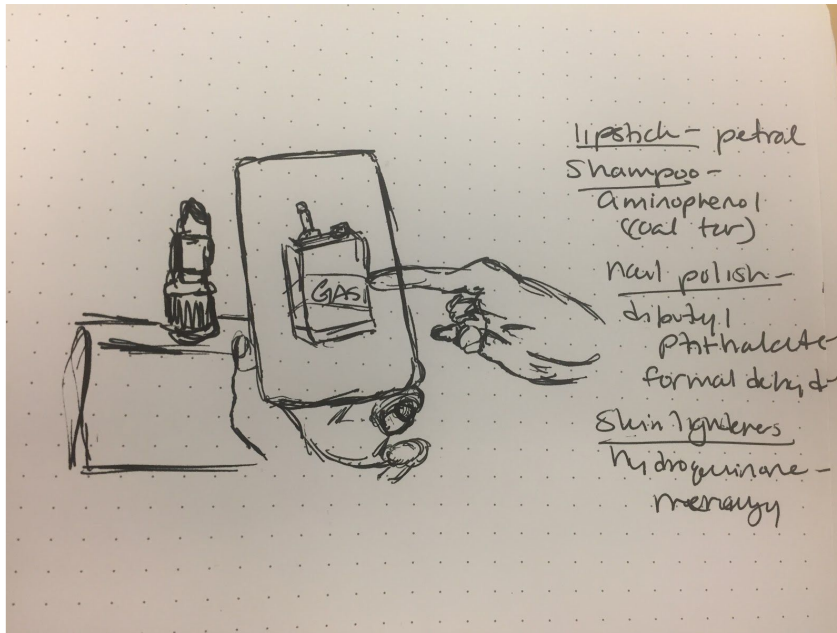 GAS
lipstick - petrol
Shampoo -
aminophenol
(coal tar)
nail polish -
dibutyl
phthalate -
formaldehyd
Skin lighteners
hydroquinone -
mercury